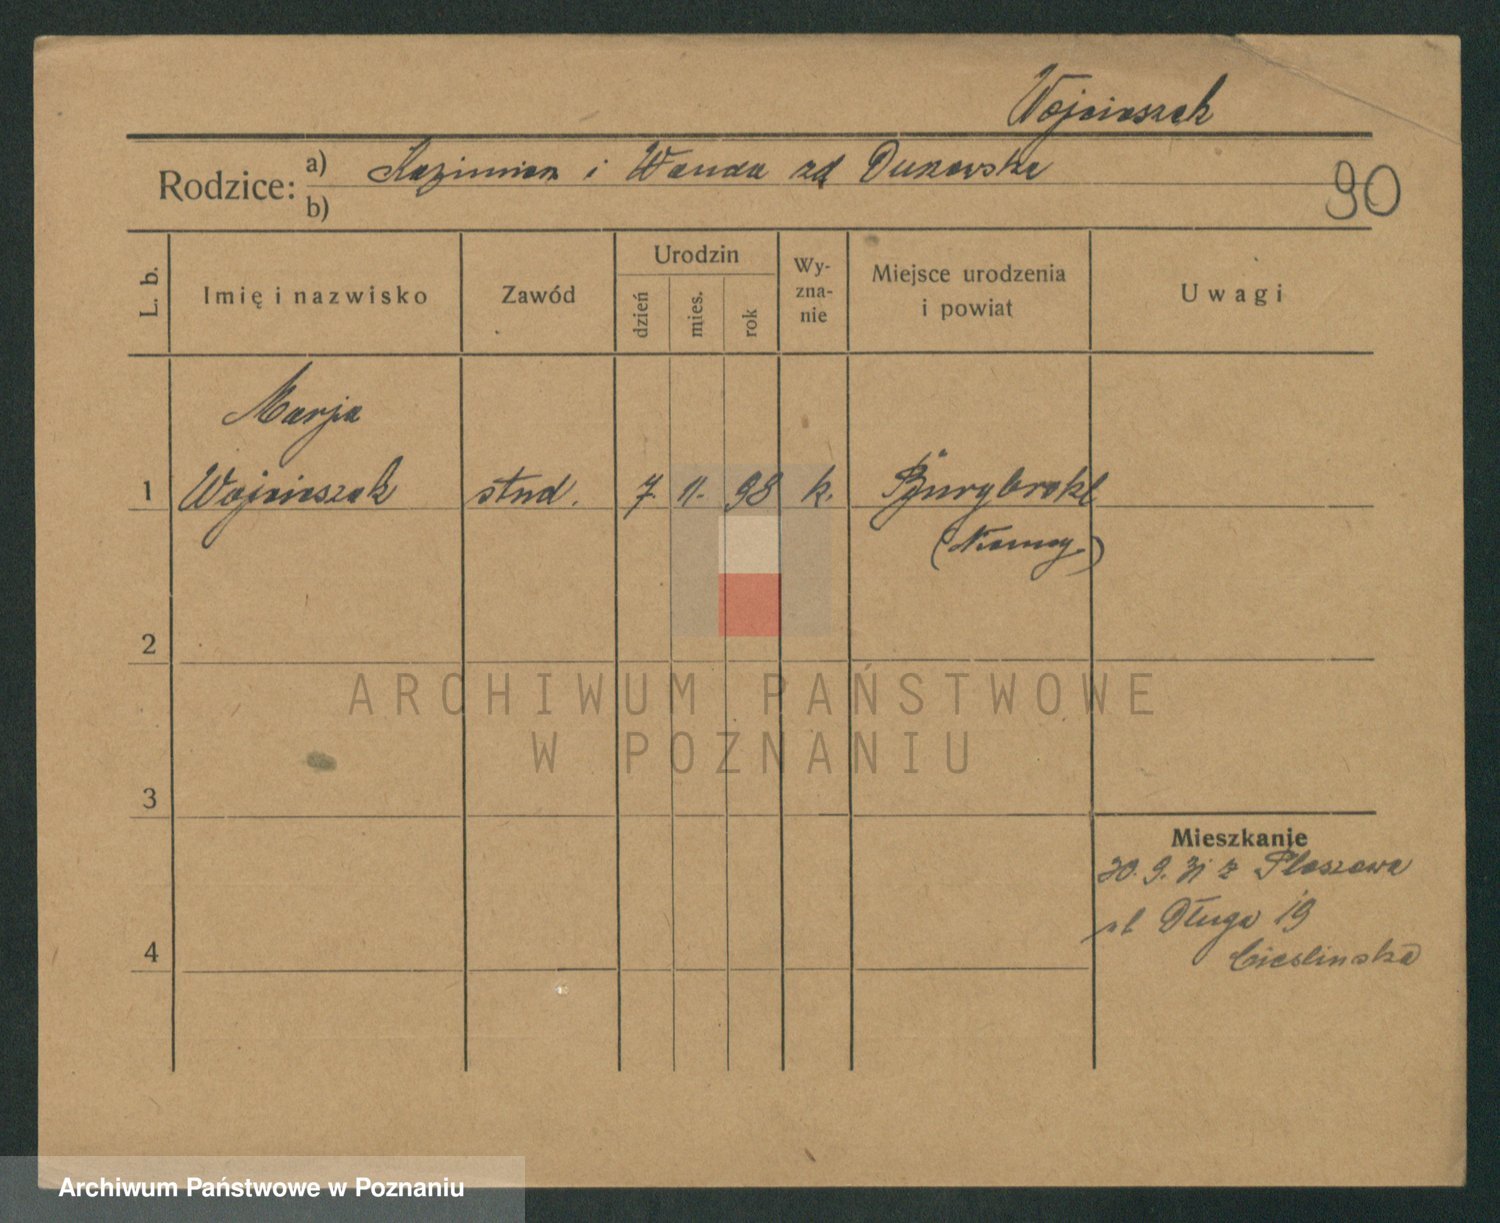 Wojcieszak
Rodzice: a) Kazimierz i Wanda zd
b)
90
L. b.
Imię i nazwisko
Zawód
Urodzin
dzień
mies.
rok
Wy-
zna-
nie
Miejsce urodzenia
i powiat
Uwagi
Marja
1 Wojcieszak stud. 7. 11. 98 k.
(Niemcy)
2
ARCHIWUM PAŃSTWOWE
W POZNANIU
3
Mieszkanie
30. 9. 31 z
Długa 19
Cieslinska
4
Archiwum Państwowe w Poznaniu